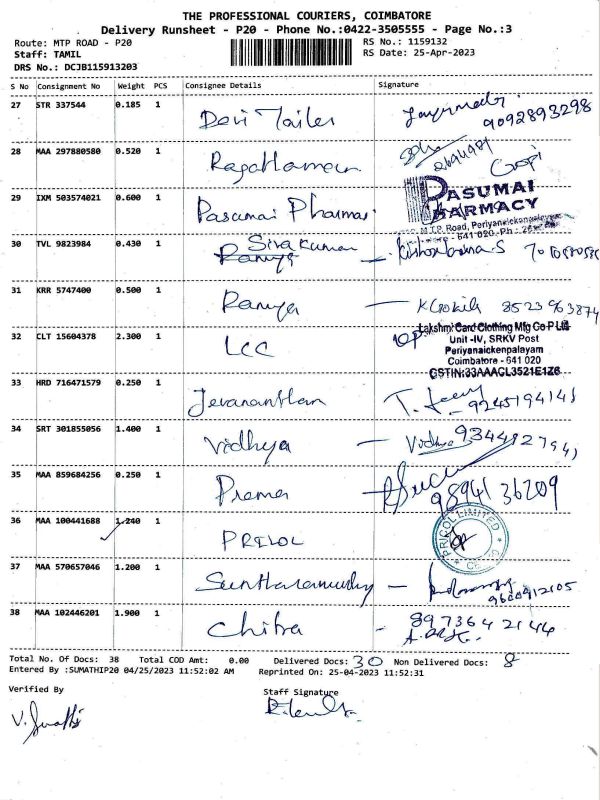 THE PROFESSIONAL COURIERS, COIMBATORE
Delivery Runsheet - P20 - Phone No.:0422-3505555 - Page No.:3
Route: MTP ROAD - P20 RS No.: 1159132
Staff: TAMIL RS Date: 25-Apr-2023
DRS No.: DCJB115913203
S No Consignment No Weight PCS Consignee Details Signature
27 STR 337544 0.185 1 Devi Tailer
9092893298
28 MAA 297880580 0.520 1 Gopi
29 IXM 503574021 0.600 1 Pasumai Pharmacy PASUMAI
PHARMACY
M.T.P. Road, Periyanaickenpalayam
641 020
30 TVL 9823984 0.430 1 Sivakumar
Ramya
31 KRR 5747400 0.500 1 Ramya - 8523963874
32 CLT 15604378 2.300 1 LCC Lakshmi Card Clothing Mfg Co P Ltd
Unit -IV, SRKV Post
Periyanaickenpalayam
Coimbatore - 641 020
GSTIN:33AAACL3521E1Z6
33 HRD 716471579 0.250 1 Jevananthan 9245194141
34 SRT 301855056 1.400 1 Vidhya - Vidhya
35 MAA 859684256 0.250 1 Prema
9894136209
36 MAA 100441688 1.240 1 PRICOL PRICOL LIMITED
37 MAA 570657046 1.200 1 -
9600912105
38 MAA 102446201 1.900 1 Chitra - 8973642144
Total No. Of Docs: 38 Total COD Amt: 0.00 Delivered Docs: 30 Non Delivered Docs: 8
Entered By :SUMATHIP20 04/25/2023 11:52:02 AM Reprinted On: 25-04-2023 11:52:31
Verified By Staff Signature